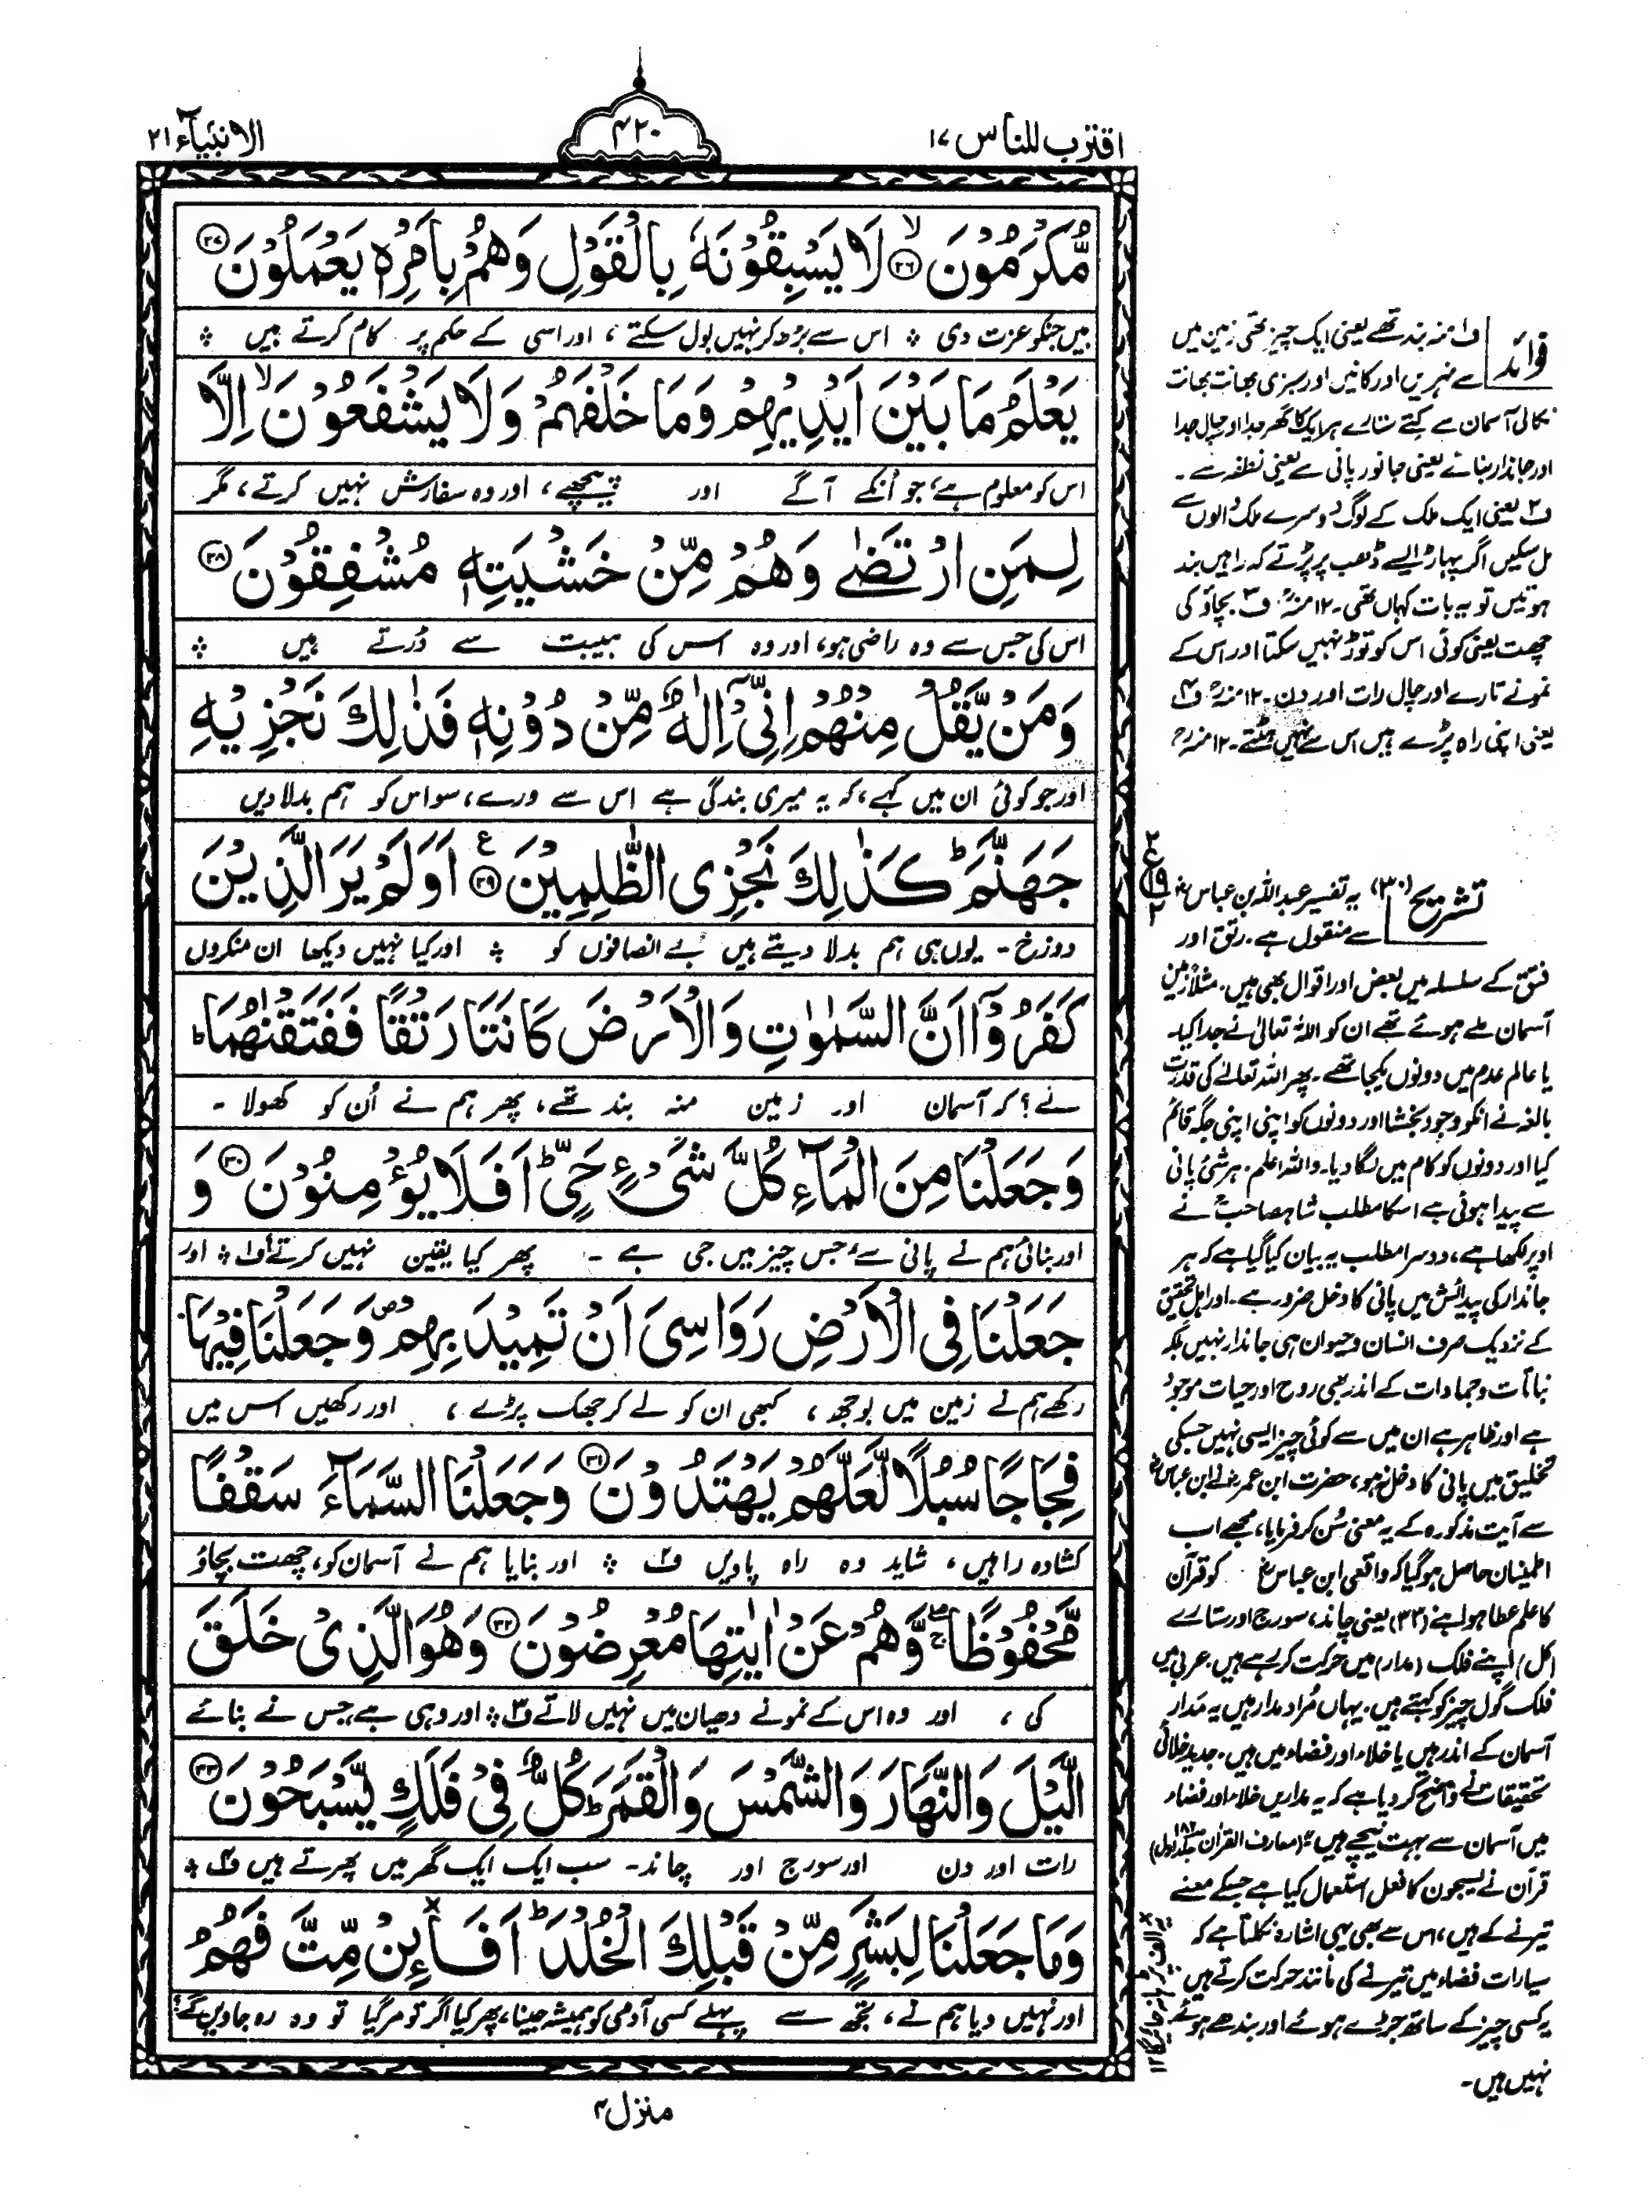 اقترب للناس ۱۷
۴۲۰
الانبیآء ۲۱
مُّكْرَمُوْنَ ۙ۝۲۶ لَا يَسْبِقُوْنَهٗ بِالْقَوْلِ وَهُمْ بِاَمْرِهٖ يَعْمَلُوْنَ ۝۲۷
ہیں جنکو عزت دی ۞ اس سے بڑھ کر نہیں بول سکتے ، اور اسی کے حکم پر کام کرتے ہیں ۞
يَعْلَمُ مَا بَيْنَ اَيْدِيْهِمْ وَمَا خَلْفَهُمْ وَلَا يَشْفَعُوْنَ ۙ اِلَّا
اس کو معلوم ہے، جو اُنکے آگے اور پیچھے ، اور وہ سفارش نہیں کرتے ، مگر
لِمَنِ ارْتَضٰى وَهُمْ مِّنْ خَشْيَتِهٖ مُشْفِقُوْنَ ۝۲۸
اس کی جس سے وہ راضی ہو، اور وہ اس کی ہیبت سے ڈرتے ہیں ۞
وَمَنْ يَّقُلْ مِنْهُمْ اِنِّيْٓ اِلٰهٌ مِّنْ دُوْنِهٖ فَذٰلِكَ نَجْزِيْهِ
اور جو کوئی ان میں کہے ، کہ یہ میری بندگی ہے اس سے ورے ، سو اس کو ہم بدلا دیں
جَهَنَّمَ ؕ كَذٰلِكَ نَجْزِي الظّٰلِمِيْنَ ۝۲۹ اَوَلَمْ يَرَ الَّذِيْنَ
دوزخ ـ یوں ہی ہم بدلا دیتے ہیں بے انصافوں کو ۞ اور کیا نہیں دیکھا ان منکروں
كَفَرُوْٓا اَنَّ السَّمٰوٰتِ وَالْاَرْضَ كَانَتَا رَتْقًا فَفَتَقْنٰهُمَا ؕ
نے ؟ کہ آسمان اور زمین منہ بند تھے ، پھر ہم نے اُن کو کھولا ـ
وَجَعَلْنَا مِنَ الْمَآءِ كُلَّ شَيْءٍ حَيٍّ ؕ اَفَلَا يُؤْمِنُوْنَ ۝۳۰ وَ
اور بنائی ہم نے پانی سے، جس چیز میں جی ہے ـ پھر کیا یقین نہیں کرتے ف۱ ۞ اور
جَعَلْنَا فِي الْاَرْضِ رَوَاسِيَ اَنْ تَمِيْدَ بِهِمْ ۪ وَجَعَلْنَا فِيْهَا
رکھے ہم نے زمین میں بوجھ ، کبھی ان کو لے کر جھک پڑے ، اور رکھیں اس میں
فِجَاجًا سُبُلًا لَّعَلَّهُمْ يَهْتَدُوْنَ ۝۳۱ وَجَعَلْنَا السَّمَآءَ سَقْفًا
کشادہ راہیں ، شاید وہ راہ پاویں ف۲ ۞ اور بنایا ہم نے آسمان کو، چھت بچاؤ
مَّحْفُوْظًا ۖۚ وَّهُمْ عَنْ اٰيٰتِهَا مُعْرِضُوْنَ ۝۳۲ وَهُوَ الَّذِيْ خَلَقَ
کی ، اور وہ اس کے نمونے دھیان میں نہیں لاتے ف۳ ۞ اور وہی ہے، جس نے بنائے
الَّيْلَ وَالنَّهَارَ وَالشَّمْسَ وَالْقَمَرَ ؕ كُلٌّ فِيْ فَلَكٍ يَّسْبَحُوْنَ ۝۳۳
رات اور دن اور سورج اور چاند ـ سب ایک ایک گھر میں پھرتے ہیں ف۴ ۞
وَمَا جَعَلْنَا لِبَشَرٍ مِّنْ قَبْلِكَ الْخُلْدَ ؕ اَفَا۟ىِٕنْ مِّتَّ فَهُمُ
اور نہیں دیا ہم نے ، تجھ سے پہلے کسی آدمی کو ہمیشہ جینا، پھر کیا اگر تو مر گیا تو وہ رہ جاویں گے؟
منزل ۴
فوائد
ف۱ منہ بند تھے یعنی ایک چیز تھی زمین میں
سے نہریں اور کانیں اور سبزی بھانت بھانت
نکالی آسمان سے کتنے ستارے ہر ایک کا گھر جدا اور چال جدا
اور جاندار بنائے یعنی جانور پانی سے یعنی نطفہ سے ۔
ف۲ یعنی ایک ملک کے لوگ دوسرے ملک والوں سے
مل سکیں اگر پہاڑ ایسے ڈھب پر پڑتے کہ راہیں بند
ہوتیں تو یہ بات کہاں تھی ۔ ۱۲ منہ ف۳ بچاؤ کی
چھت یعنی کوئی اس کو توڑ نہیں سکتا اور اس کے
نمونے تارے اور چال رات اور دن ۔ ۱۲ منہ ف۴
یعنی اپنی راہ پڑے ہیں اس سے نہیں ہٹتے ۔ ۱۲ منہ
۲
ع
۱۹
۲
تشریح
(۳۰) یہ تفسیر عبداللہ بن عباسؓ
سے منقول ہے. رتق اور
فتق کے سلسلہ میں بعض اور اقوال بھی ہیں. مثلاً زمین
آسمان ملے ہوئے تھے ان کو اللہ تعالیٰ نے جدا کیا۔
یا عالم عدم میں دونوں یکجا تھے ۔ پھر اللہ تعالےٰ کی قدرت
بالغہ نے انکو وجود بخشا اور دونوں کو اپنی اپنی جگہ قائم
کیا اور دونوں کو کام میں لگا دیا۔ واللہ اعلم. ہر شئ پانی
سے پیدا ہوئی ہے اسکا مطلب شاہ صاحبؒ نے
اوپر لکھا ہے ، دوسرا مطلب یہ بیان کیا گیا ہے کہ ہر
جاندار کی پیدائش میں پانی کا دخل ضرور ہے ۔ اور اہل تحقیق
کے نزدیک صرف انسان و حیوان ہی جاندار نہیں بلکہ
نباتات و جمادات کے اندر بھی روح اور حیات موجود
ہے اور ظاہر ہے ان میں سے کوئی چیز ایسی نہیں جسکی
تخلیق میں پانی کا دخل نہ ہو، حضرت ابن عمرؓ نے ابن عباسؓ
سے آیت مذکورہ کے یہ معنی سُن کر فرمایا، مجھے اب
اطمینان حاصل ہو گیا کہ واقعی ابن عباسؓ کو قرآن
کا علم عطا ہوا ہے (۳۳) یعنی چاند، سورج اور ستارے
(کل) اپنے فلک (مدار) میں حرکت کر رہے ہیں. عربی میں
فلک گول چیز کو کہتے ہیں. یہاں مُراد مدار ہیں یہ مدار
آسمان کے اندر ہیں یا خلاء اور فضاء میں ہیں. جدید خلائی
تحقیقات نے واضح کر دیا ہے کہ یہ مداریں خلاء اور فضاء
میں آسمان سے بہت نیچے ہیں" (معارف القرآن ۱۸۲ جلد اول)
قرآن نے یسبحون کا فعل استعمال کیا ہے جسکے معنے
تیرنے کے ہیں ، اس سے بھی یہی اشارہ نکلتا ہے کہ
سیارات فضاء میں تیرنے کی مانند حرکت کرتے ہیں
یہ کسی چیز کے ساتھ جڑے ہوئے اور بندھے ہوئے
نہیں ہیں ۔